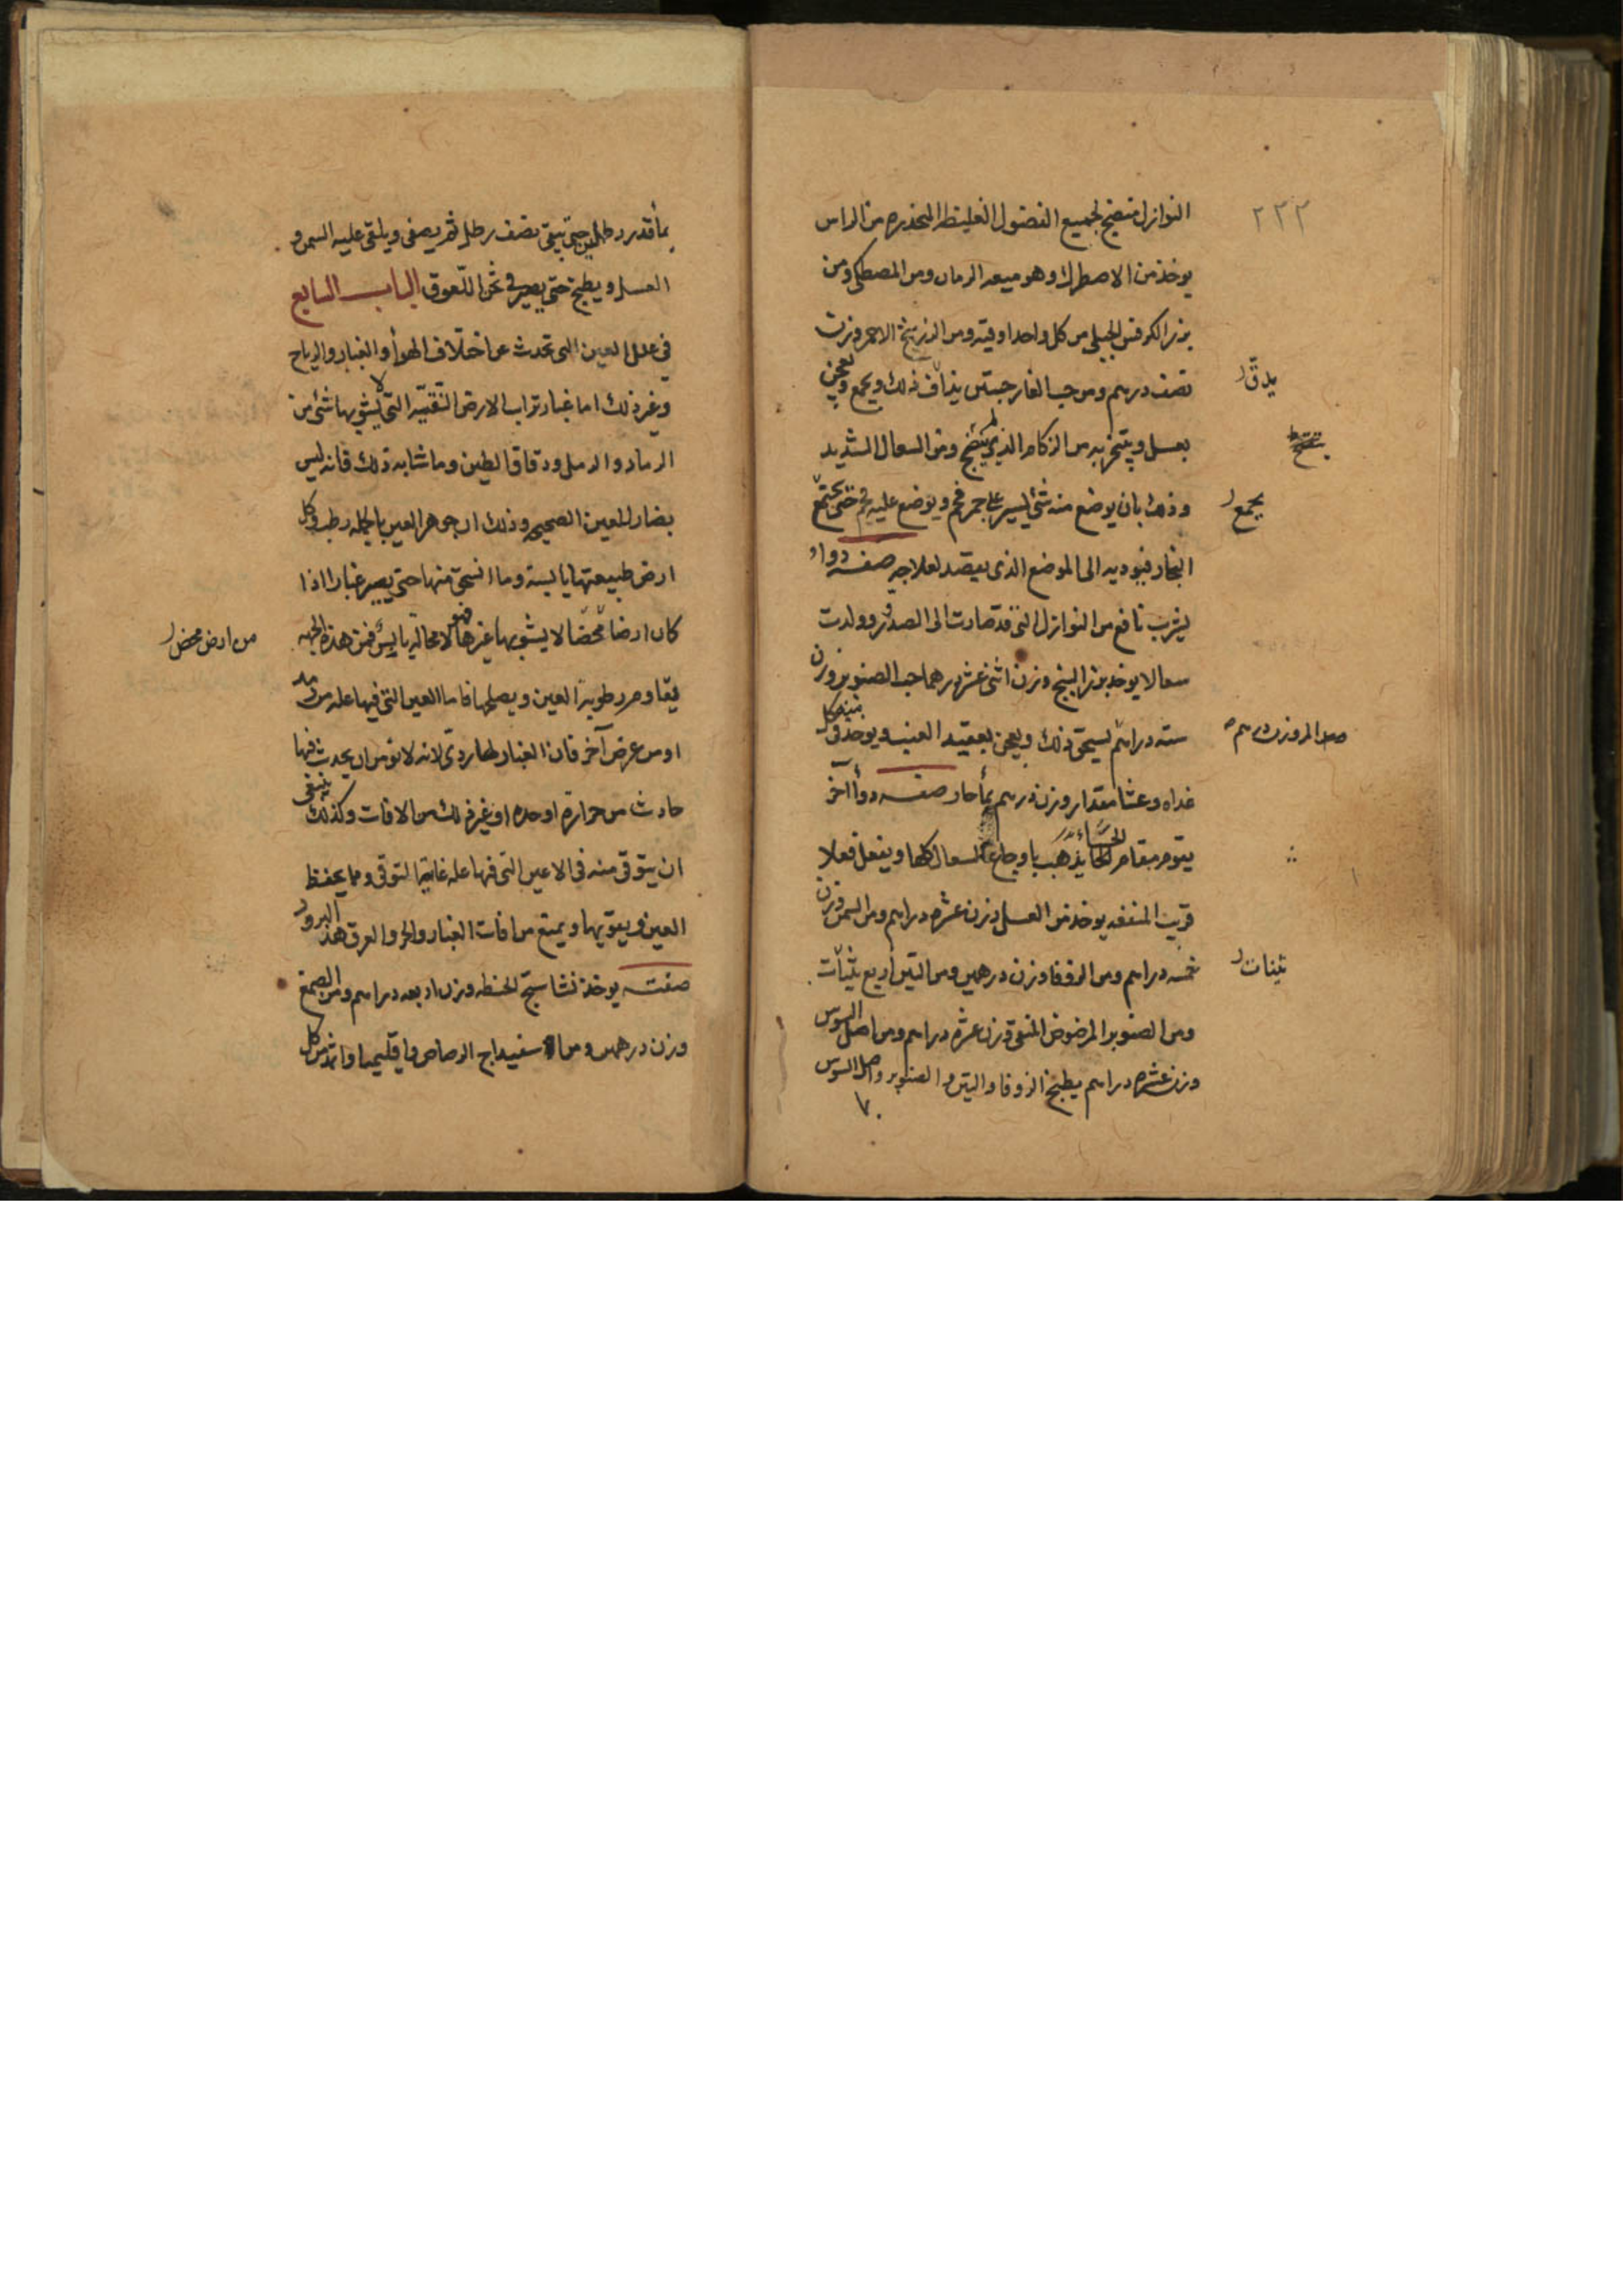 ٢٢٢
النوازل منضج لجميع الفضول الغليظه المنحدره من الراس
يوخذ من الاصطرك وهو ميعه الرمان ومن المصطكى ومن
بزر الكرفس الجبلى من كل واحد اوقيه ومن الزرنيخ الاحمر وزن
نصف درهم ومن حب الغار حبتين يذاف ذلك ويجمع ويعجن
يدق
بعسل ويتبخر به من الزكام الذى لم ينضج ومن السعال الشديد
وذلك بان يوضع منه شئ يسير على جمر فحم ويوضع عليه قمع حتى يجتمع
يجمع
البخار فيوديه الى الموضع الذى يقصد لعلاجه صفه دواء
يشرب نافع من النوازل التى قد صارت الى الصدر وولدت
سعالا يوخذ بزر البنج وزن اثنى عشر درهما حب الصنوبر وزن
سته دراهم يسحق ذلك ويعجن بعقيد العنب ويوخذ منه كل
وصل المر وزن درهم
غداه وعشا مقدار وزن درهم بمأ حار صفه دوأ آخر
يقوم مقام الحسأ يذهب باوجاع السعال كلها ويفعل فعلا
قريب المنفعه يوخذ من العسل وزن عشره دراهم ومن السمن وزن
خمسه دراهم ومن الزوفا وزن درهمين ومن التين اربع تينات
تينات
ومن الصنوبر المرضوض المنقى وزن عشره دراهم ومن اصل السوس
وزن عشره دراهم يطبخ الزوفا والتين والصنوبر واصل السوس
بمأ قدر رطلين حتى يبقى نصف رطل ثم يصفى ويلقى عليه السمن و
العسل ويطبخ حتى يصير فى ثخن اللعوق الباب السابع
فى علل العين التى تحدث عن اختلاف الهوأ والغبار والرياح
وغير ذلك اما غبار تراب الارض النقيه التى لا يشوبها شئ من
الرماد والرمل ودقاق الطين وما شابه ذلك فانه ليس
بضار للعين الصحيحه وذلك ان جوهر العين بالجمله رطب وكل
ارض طبيعتها يابسه وما انسحق منها حتى يصير غبارا اذا
كان ارضا محضا لا يشوبها غيرها فهو لا محاله يابس فمن هذه الجهه
من ارض محض
يقاوم رطوبة العين ويصلحها فاما العين التى فيها عله من رمد
او من عرض آخر فان الغبار لها ردى لانه لا نومن ان يحدث فيها
حادث من حراره او حده او غير ذلك من الافات وكذلك ينبغى
ان يتوقى منه فى الاعين التى فيها عله غاية التوقى ومما يحفظ
العين ويقويها ويمنع من افات الغبار والحر والعرق هذا البرود
صفته يوخذ نشاستج الحنطه وزن اربعه دراهم ومن الصمغ
وزن درهمين ومن اسفيداج الرصاص واقليميا واثمد من كل